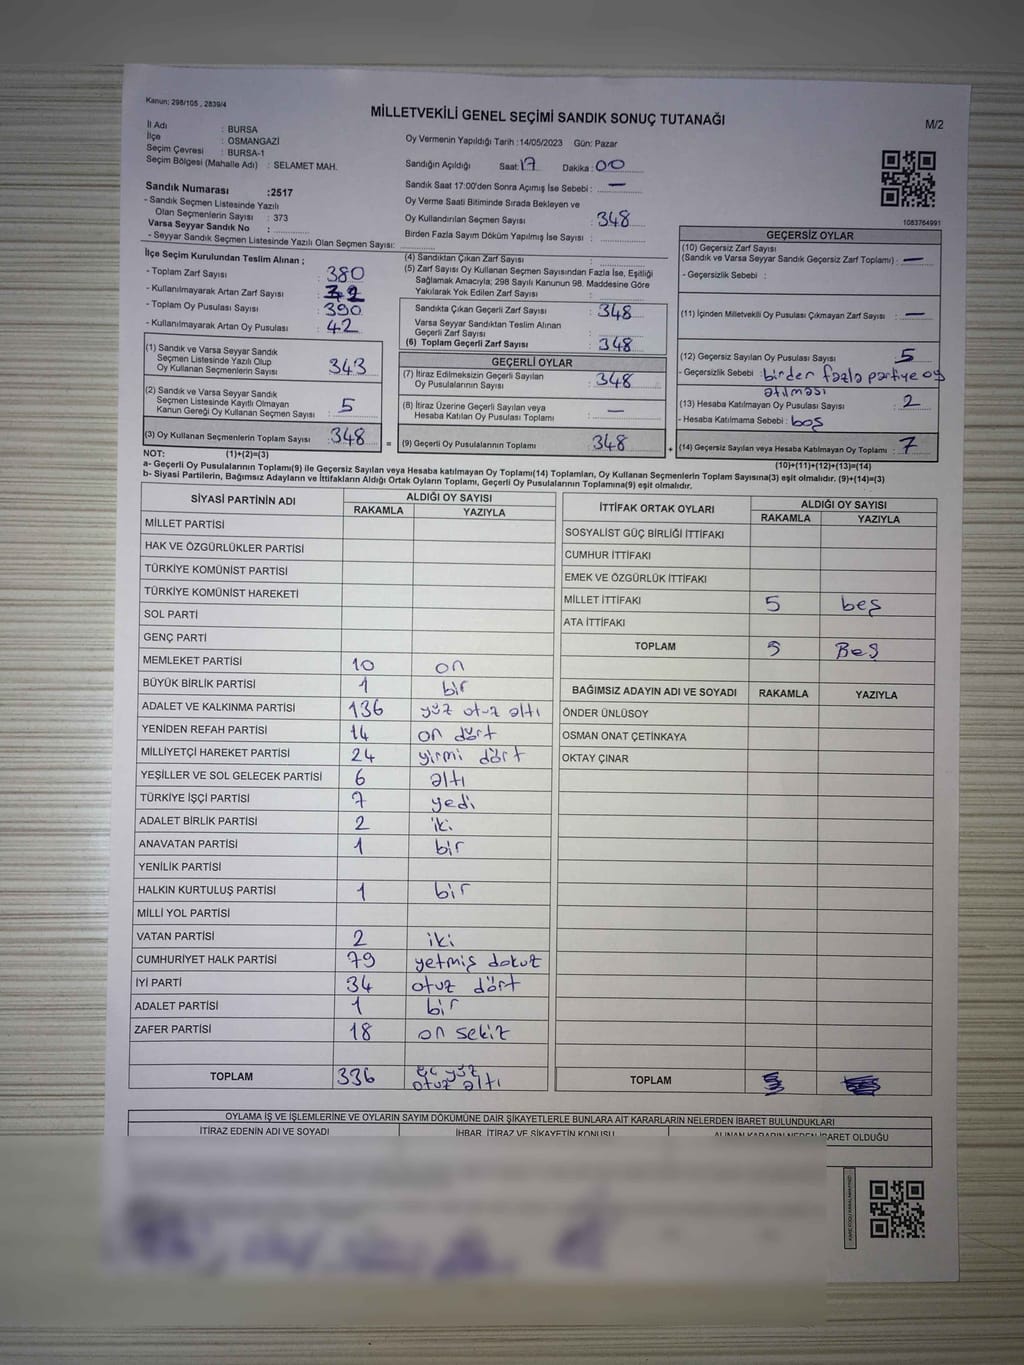 Kanun: 298/105 , 2839/4
MİLLETVEKİLİ GENEL SEÇİMİ SANDIK SONUÇ TUTANAĞI
M/2
İl Adı : BURSA
İlçe : OSMANGAZİ
Seçim Çevresi : BURSA-1
Seçim Bölgesi (Mahalle Adı) : SELAMET MAH.
Oy Vermenin Yapıldığı Tarih :14/05/2023 Gün: Pazar
Sandığın Açıldığı Saat: 17 Dakika : 00
Sandık Saat 17:00'den Sonra Açımış İse Sebebi : —
Oy Verme Saati Bitiminde Sırada Bekleyen ve
Oy Kullandırılan Seçmen Sayısı : 348
Birden Fazla Sayım Döküm Yapılmış İse Sayısı :
1083764991
Sandık Numarası :2517
- Sandık Seçmen Listesinde Yazılı
Olan Seçmenlerin Sayısı : 373
Varsa Seyyar Sandık No :
- Seyyar Sandık Seçmen Listesinde Yazılı Olan Seçmen Sayısı:
İlçe Seçim Kurulundan Teslim Alınan ;
- Toplam Zarf Sayısı : 380
- Kullanılmayarak Artan Zarf Sayısı : 32
- Toplam Oy Pusulası Sayısı : 390
- Kullanılmayarak Artan Oy Pusulası : 42
(1) Sandık ve Varsa Seyyar Sandık
Seçmen Listesinde Yazılı Olup
Oy Kullanan Seçmenlerin Sayısı : 343
(2) Sandık ve Varsa Seyyar Sandık
Seçmen Listesinde Kayıtlı Olmayan
Kanun Gereği Oy Kullanan Seçmen Sayısı : 5
(3) Oy Kullanan Seçmenlerin Toplam Sayısı : 348
(4) Sandıktan Çıkan Zarf Sayısı :
(5) Zarf Sayısı Oy Kullanan Seçmen Sayısından Fazla İse, Eşitliği
Sağlamak Amacıyla; 298 Sayılı Kanunun 98. Maddesine Göre
Yakılarak Yok Edilen Zarf Sayısı :
Sandıkta Çıkan Geçerli Zarf Sayısı : 348
Varsa Seyyar Sandıktan Teslim Alınan
Geçerli Zarf Sayısı :
(6) Toplam Geçerli Zarf Sayısı : 348
GEÇERLİ OYLAR
(7) İtiraz Edilmeksizin Geçerli Sayılan
Oy Pusulalarının Sayısı : 348
(8) İtiraz Üzerine Geçerli Sayılan veya
Hesaba Katılan Oy Pusulası Toplamı : —
= (9) Geçerli Oy Pusulalarının Toplamı : 348
GEÇERSİZ OYLAR
(10) Geçersiz Zarf Sayısı
(Sandık ve Varsa Seyyar Sandık Geçersiz Zarf Toplamı) : —
- Geçersizlik Sebebi :
(11) İçinden Milletvekili Oy Pusulası Çıkmayan Zarf Sayısı : —
(12) Geçersiz Sayılan Oy Pusulası Sayısı : 5
- Geçersizlik Sebebi : birden fazla partiye oy
atılması
(13) Hesaba Katılmayan Oy Pusulası Sayısı : 2
- Hesaba Katılmama Sebebi : boş
+ (14) Geçersiz Sayılan veya Hesaba Katılmayan Oy Toplamı : 7
NOT: (1)+(2)=(3)
(10)+(11)+(12)+(13)=(14)
a- Geçerli Oy Pusulalarının Toplamı(9) ile Geçersiz Sayılan veya Hesaba katılmayan Oy Toplamı(14) Toplamları, Oy Kullanan Seçmenlerin Toplam Sayısına(3) eşit olmalıdır. (9)+(14)=(3)
b- Siyasi Partilerin, Bağımsız Adayların ve İttifakların Aldığı Ortak Oyların Toplamı, Geçerli Oy Pusulalarının Toplamına(9) eşit olmalıdır.
SİYASİ PARTİNİN ADI ALDIĞI OY SAYISI
RAKAMLA YAZIYLA
MİLLET PARTİSİ
HAK VE ÖZGÜRLÜKLER PARTİSİ
TÜRKİYE KOMÜNİST PARTİSİ
TÜRKİYE KOMÜNİST HAREKETİ
SOL PARTİ
GENÇ PARTİ
MEMLEKET PARTİSİ 10 on
BÜYÜK BİRLİK PARTİSİ 1 bir
ADALET VE KALKINMA PARTİSİ 136 yüz otuz altı
YENİDEN REFAH PARTİSİ 14 on dört
MİLLİYETÇİ HAREKET PARTİSİ 24 yirmi dört
YEŞİLLER VE SOL GELECEK PARTİSİ 6 altı
TÜRKİYE İŞÇİ PARTİSİ 7 yedi
ADALET BİRLİK PARTİSİ 2 iki
ANAVATAN PARTİSİ 1 bir
YENİLİK PARTİSİ
HALKIN KURTULUŞ PARTİSİ 1 bir
MİLLİ YOL PARTİSİ
VATAN PARTİSİ 2 iki
CUMHURİYET HALK PARTİSİ 79 yetmiş dokuz
İYİ PARTİ 34 otuz dört
ADALET PARTİSİ 1 bir
ZAFER PARTİSİ 18 on sekiz
TOPLAM 336 üç yüz
otuz altı
İTTİFAK ORTAK OYLARI ALDIĞI OY SAYISI
RAKAMLA YAZIYLA
SOSYALİST GÜÇ BİRLİĞİ İTTİFAKI
CUMHUR İTTİFAKI
EMEK VE ÖZGÜRLÜK İTTİFAKI
MİLLET İTTİFAKI 5 beş
ATA İTTİFAKI
TOPLAM 5 Beş
BAĞIMSIZ ADAYIN ADI VE SOYADI RAKAMLA YAZIYLA
ÖNDER ÜNLÜSOY
OSMAN ONAT ÇETİNKAYA
OKTAY ÇINAR
TOPLAM
OYLAMA İŞ VE İŞLEMLERİNE VE OYLARIN SAYIM DÖKÜMÜNE DAİR ŞİKAYETLERLE BUNLARA AİT KARARLARIN NELERDEN İBARET BULUNDUKLARI
İTİRAZ EDENİN ADI VE SOYADI İHBAR, İTİRAZ VE ŞİKAYETİN KONUSU ALINAN KARARIN NEDEN İBARET OLDUĞU